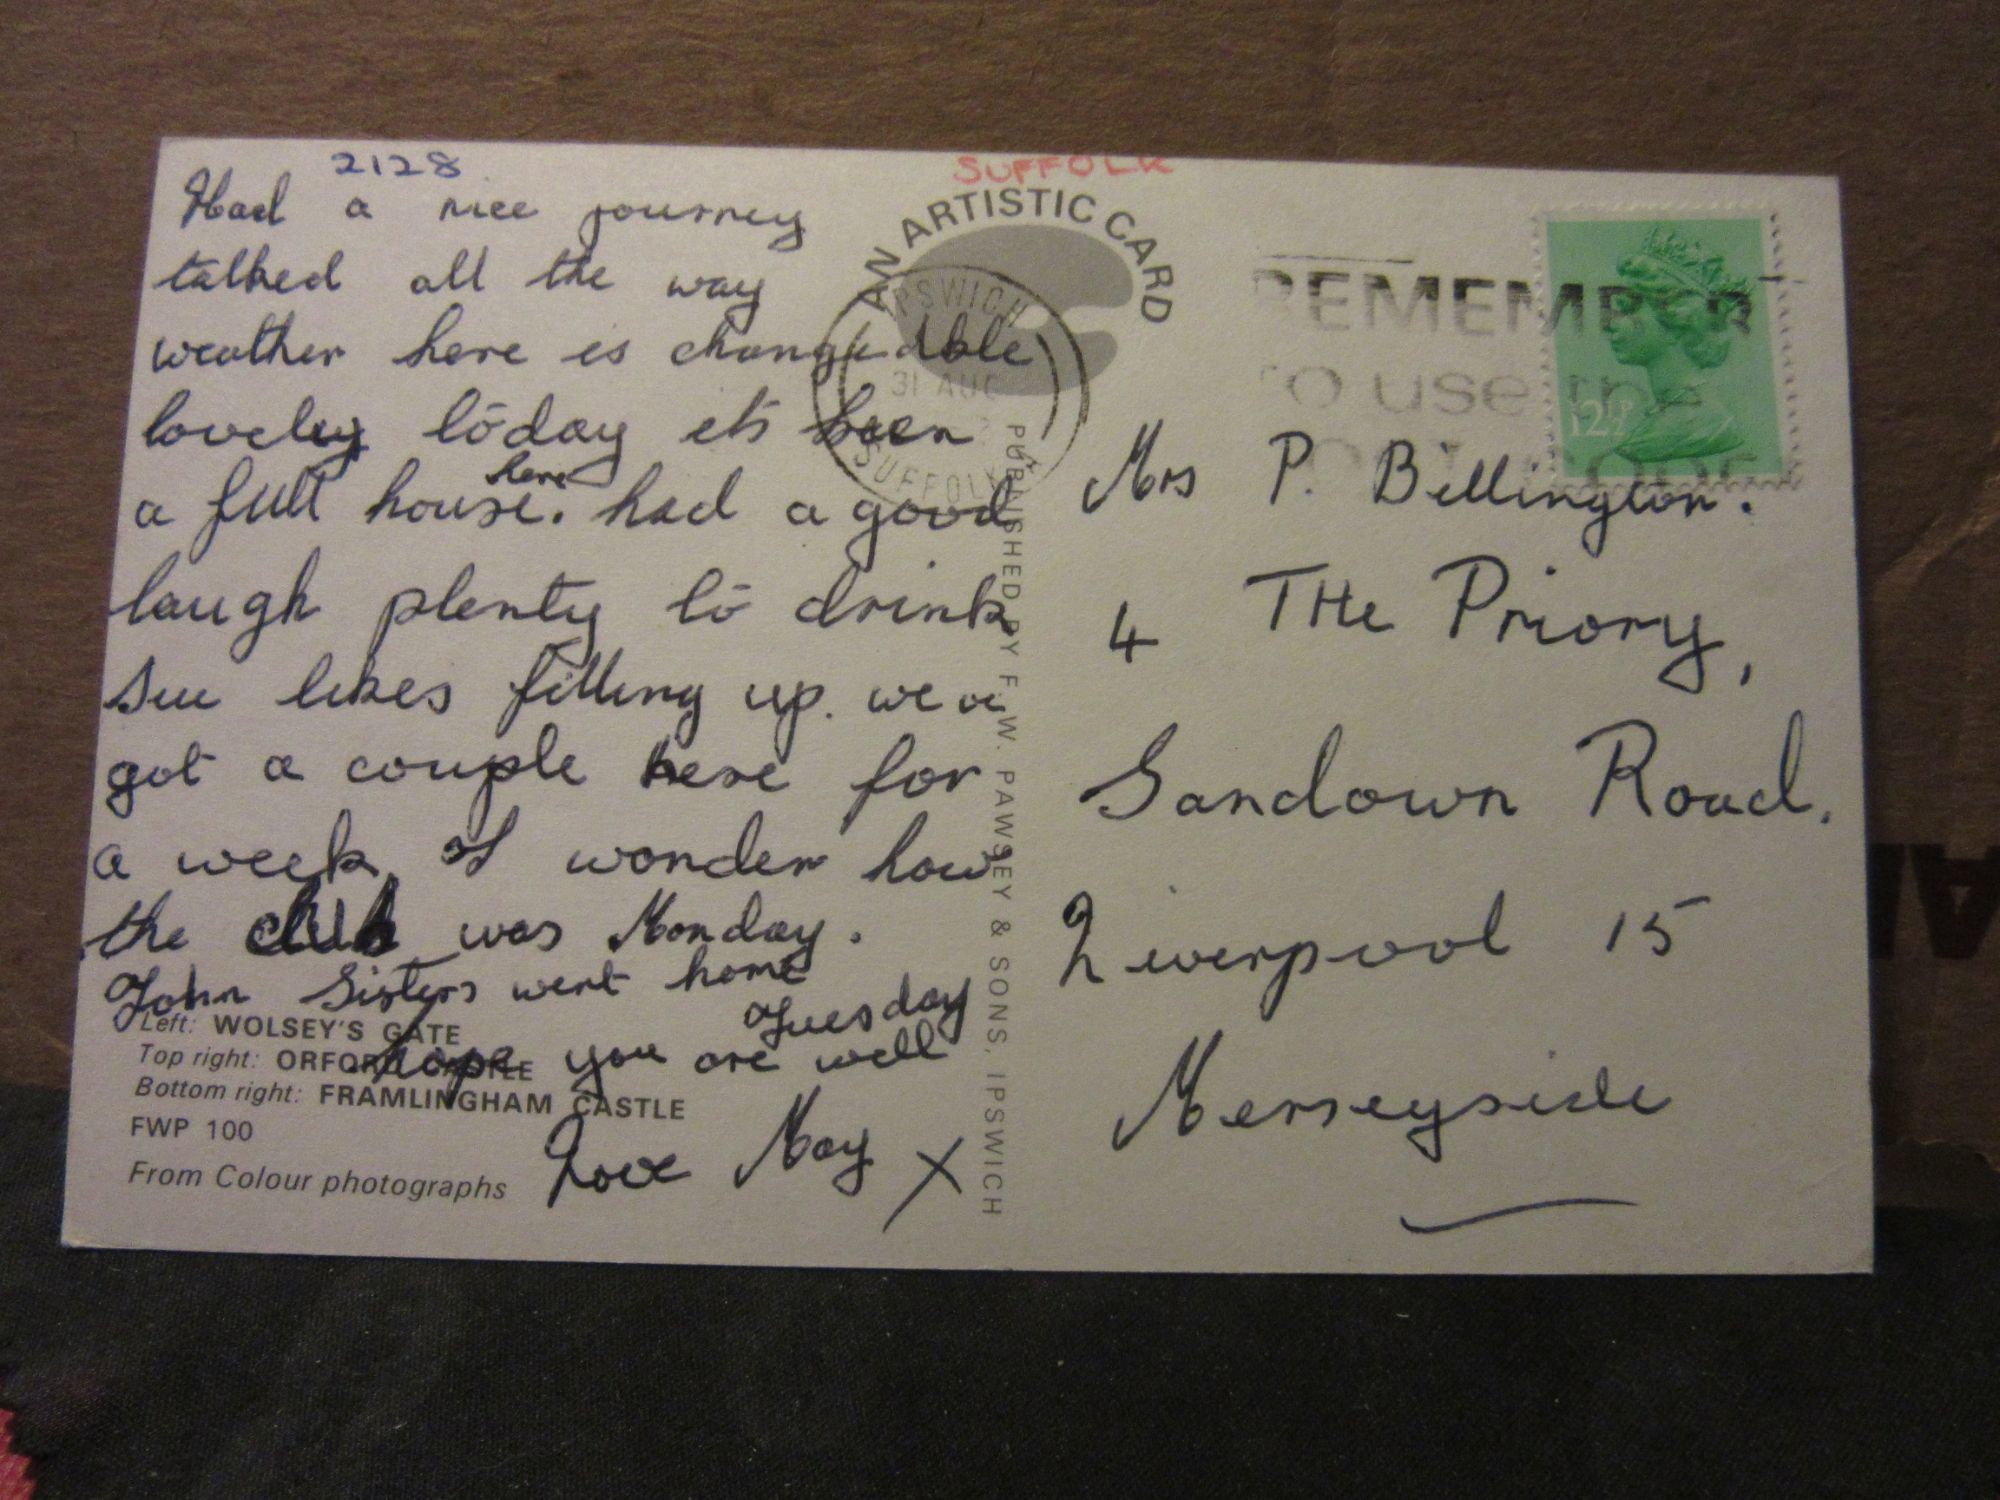 2128
SUFFOLK
Had a nice journey
talked all the way
weather here is changeable
lovely today its been
a full house here. had a good
laugh plenty to drink
Sue likes filling up. we
got a couple here for
a week, I wonder how
the club was Monday.
John Sisters went home
Tuesday
hope you are well
Love May X
Left: WOLSEY'S GATE
Top right: ORFORD CASTLE
Bottom right: FRAMLINGHAM CASTLE
FWP 100
From Colour photographs
AN ARTISTIC CARD
IPSWICH
31 AUG
SUFFOLK
PUBLISHED BY F. W. PAWSEY & SONS, IPSWICH
REMEMBER
TO use the
12½P
Mrs P. Billington.
4 THe Priory,
Sandown Road.
Liverpool 15
Merseyside